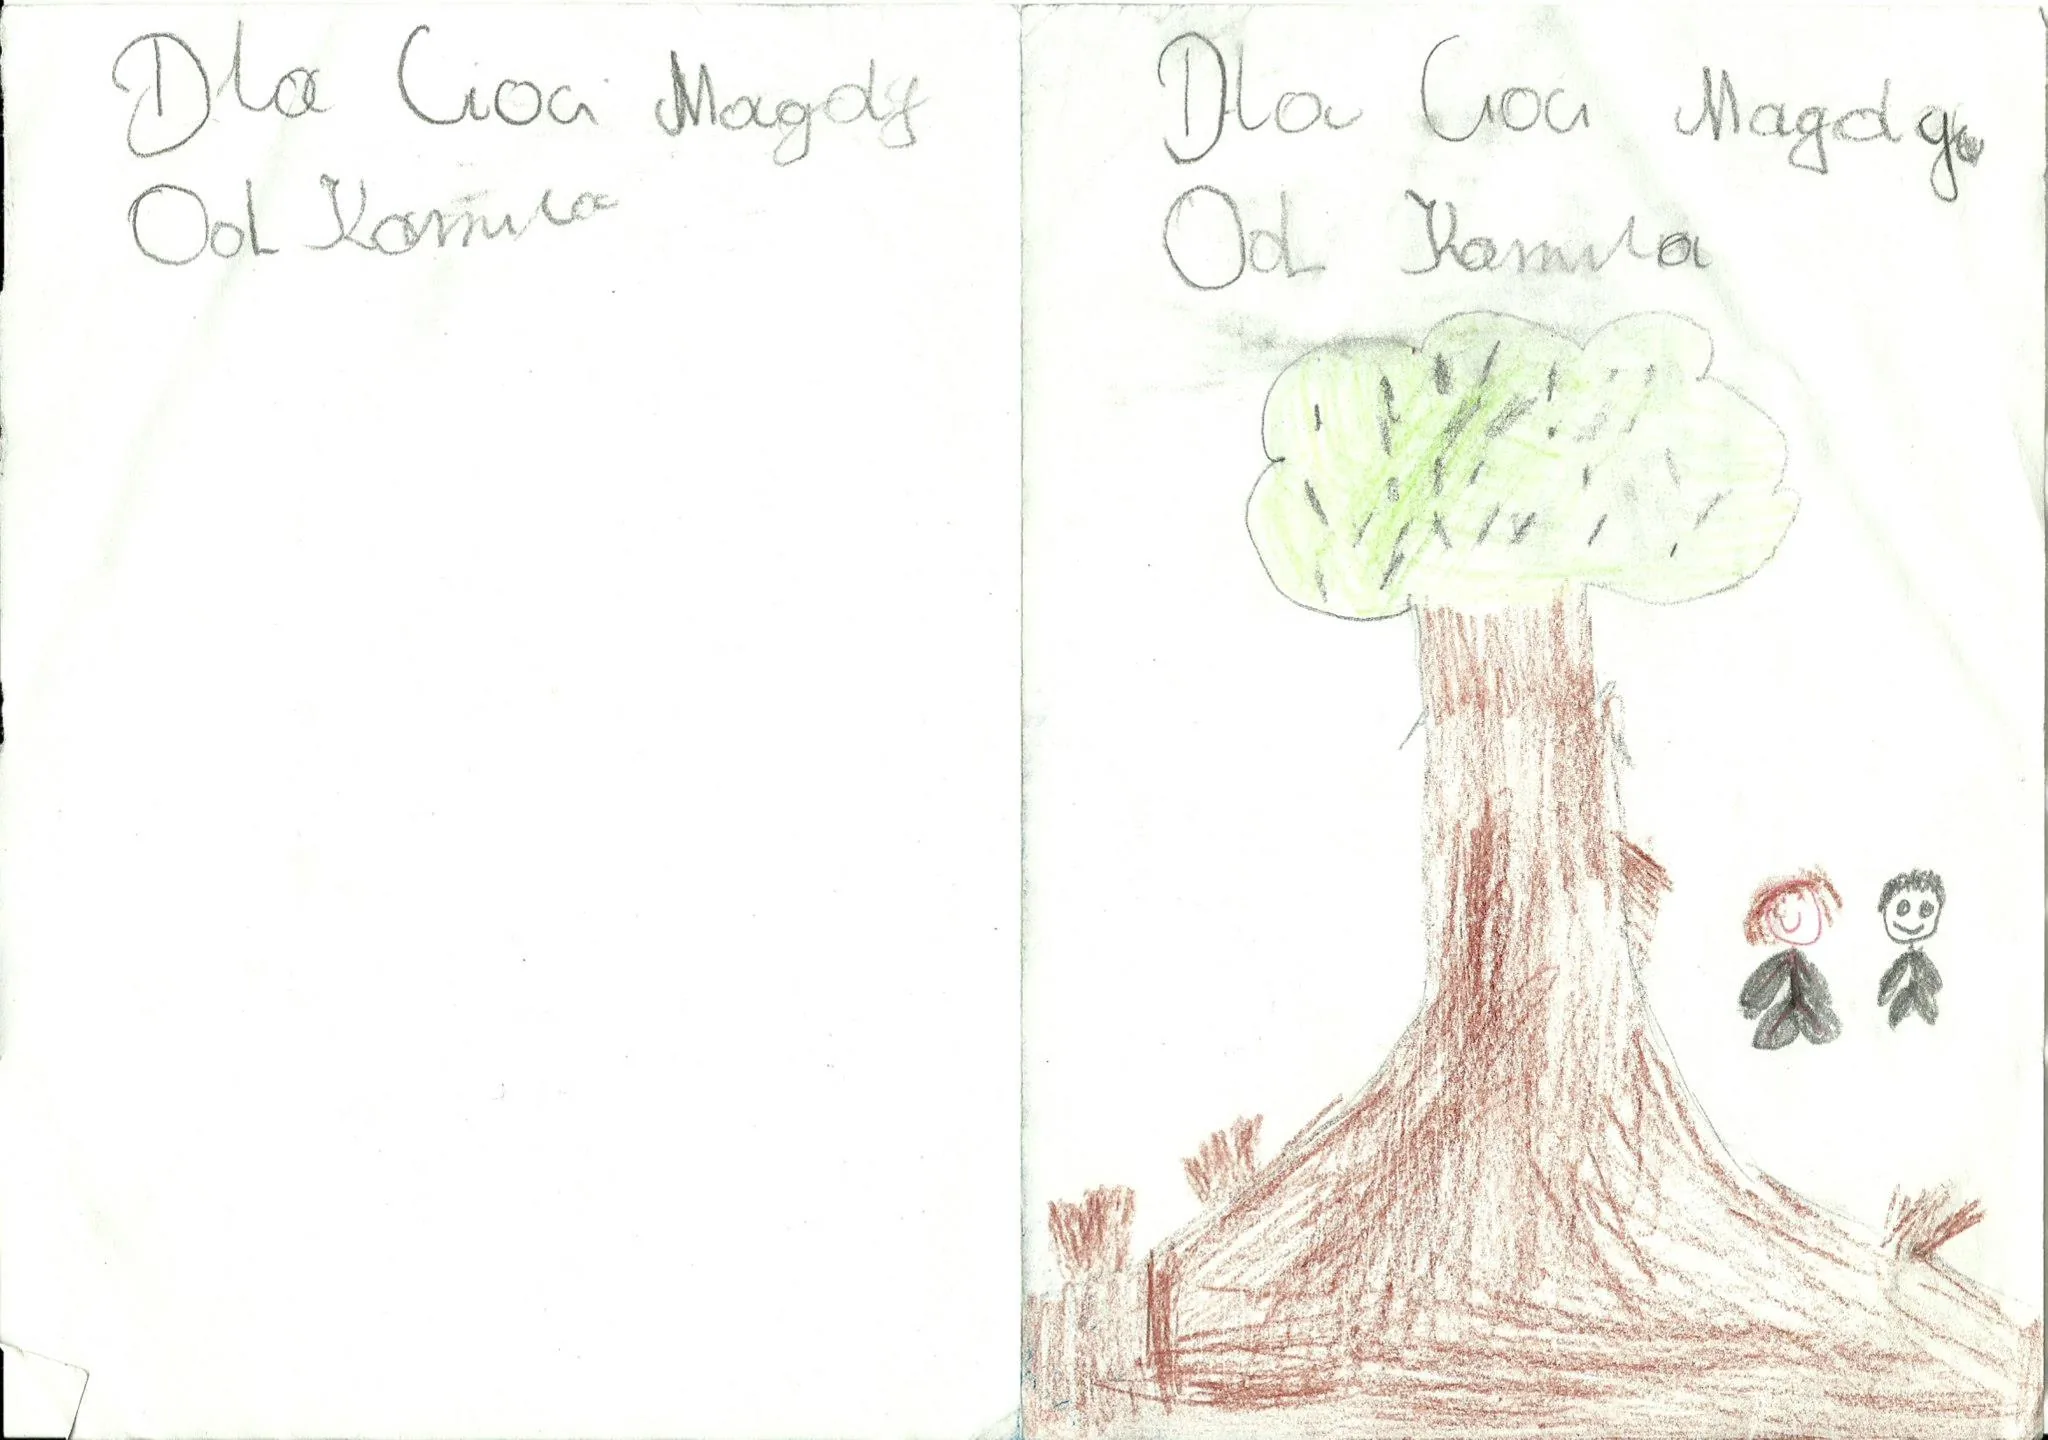 Dla Cioci Magdy
Od Kamila
Dla Cioci Magdy
Od Kamila